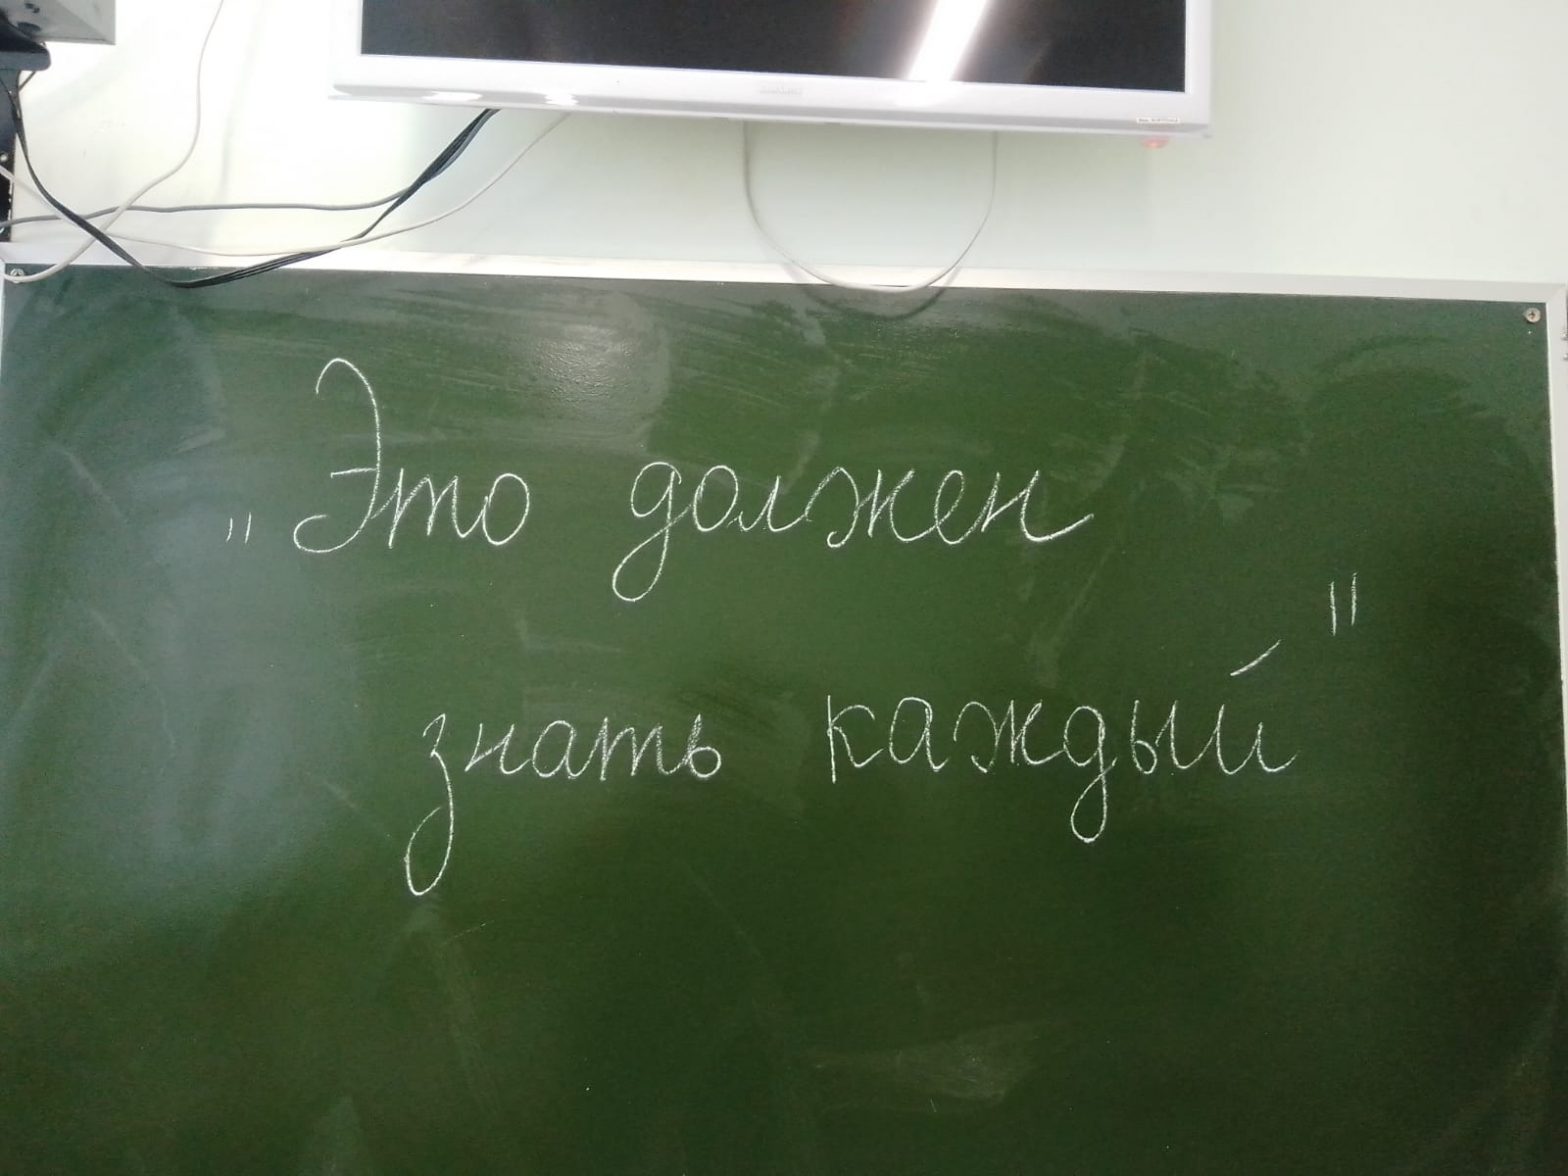 "Это должен
знать каждый"